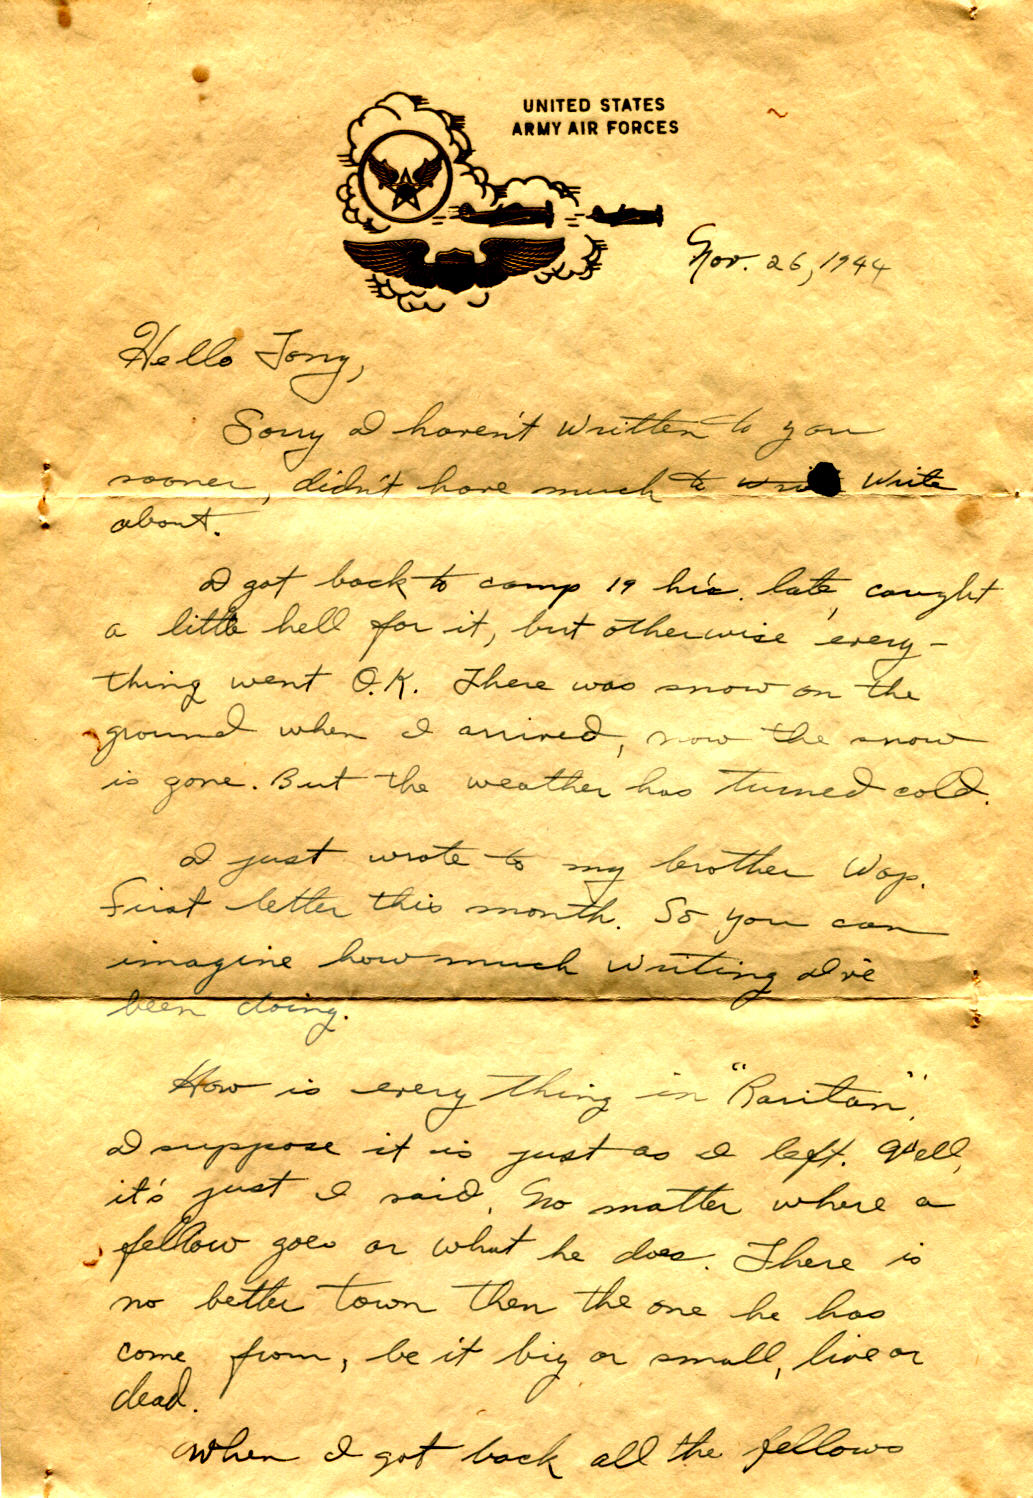 UNITED STATES
ARMY AIR FORCES
Nov. 26, 1944
Hello Tony,
Sorry I haven't written to you
sooner, didn't have much to write
about.
I got back to camp 19 hrs. late, caught
a little hell for it, but otherwise every-
thing went O.K. There was snow on the
ground when I arrived, now the snow
is gone. But the weather has turned cold.
I just wrote to my brother Wop.
First letter this month. So you can
imagine how much writing I've
been doing.
How is every thing in "Raritan".
I suppose it is just as I left. Well,
it's just I said. No matter where a
fellow goes or what he does. There is
no better town then the one he has
come from, be it big or small, live or
dead.
When I got back all the fellows